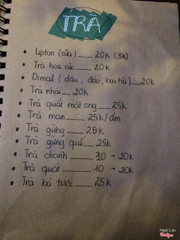 TRÀ
Lipton (sữa) 20k (5k)
Trà hoa cúc 20k
Dimail (dâu, đào, bạc hà) 20k
Trà nhài 20k
Trà quất mật ong 25k
Trà man 25k/ấm
Trà gừng 25k
Trà gừng quế 25k
Trà chanh 20k
Trà quất 10 → 20k
Trà bá tước 25k